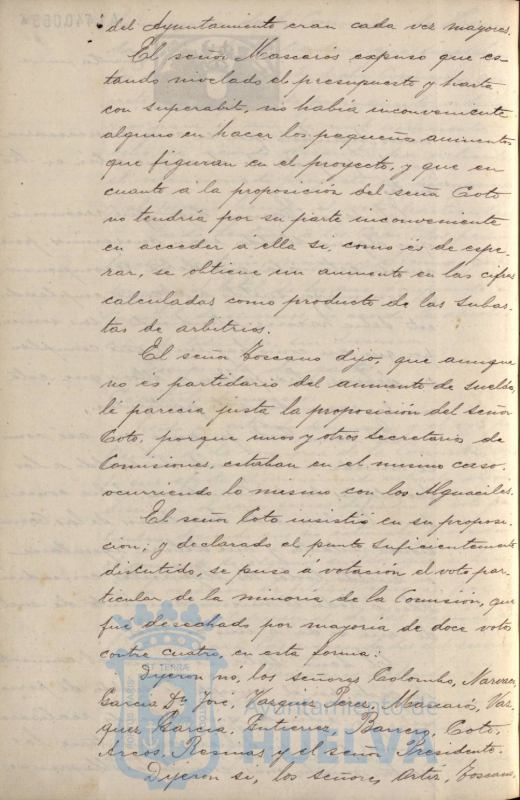 del Ayuntamiento eran cada vez mayores.
El señor Mascarós expuso que es-
tando nivelado el presupuesto y hasta
con superabit, no había inconveniente
alguno en hacer los pequeños aumentos
que figuran en el proyecto, y que en
cuanto á la proposición del señor Coto
no tendría por su parte inconveniente
en acceder á ella si, como és de espe-
rar, se obtiene un aumento en las cifras
calculadas como producto de las subas-
tas de arbitrios.
El señor Toscano dijo, que aunque
no és partidario del aumento de sueldo,
le parecía justa la proposición del señor
Coto, porque unos y otros secretario de
Comisiones, estaban en el mismo caso,
ocurriendo lo mismo con los Alguaciles.
El señor Coto insistió en su proposi-
cion; y declarado el punto suficientemente
discutido, se puso á votación el voto par-
ticular de la minoria de la Comisión, que
fué desechado por mayoría de doce votos
contra cuatro, en esta forma:
Dijeron nó, los señores Colombo,
García Dn. José, Vazquez Perez, Mascarós, Vaz-
quez, García, Gutierrez, Barrero, Coto,
Arcos, y el señor Presidente.
Dijeron si, los señores, Ortiz, Toscano,
ET TERRAE
Ayuntamiento de
HUELVA